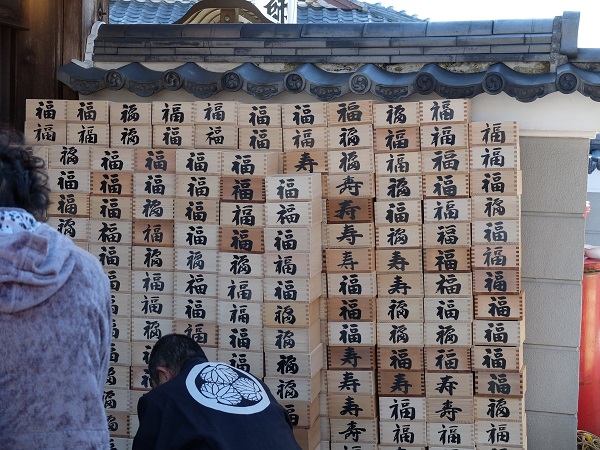 福福福福福福福福福福
福福福福福福福福福福福
福福福福福寿福福福福
福福福福福福寿福福福
福福福福福福寿福福福
福福福福福福寿福福福
福福福福福寿寿福福
福福福福福福寿福福
福福福福福福福福福
福福福福福福福福福
福福福福寿福寿福
福福寿寿寿福
福福寿福寿福
福福寿福寿福